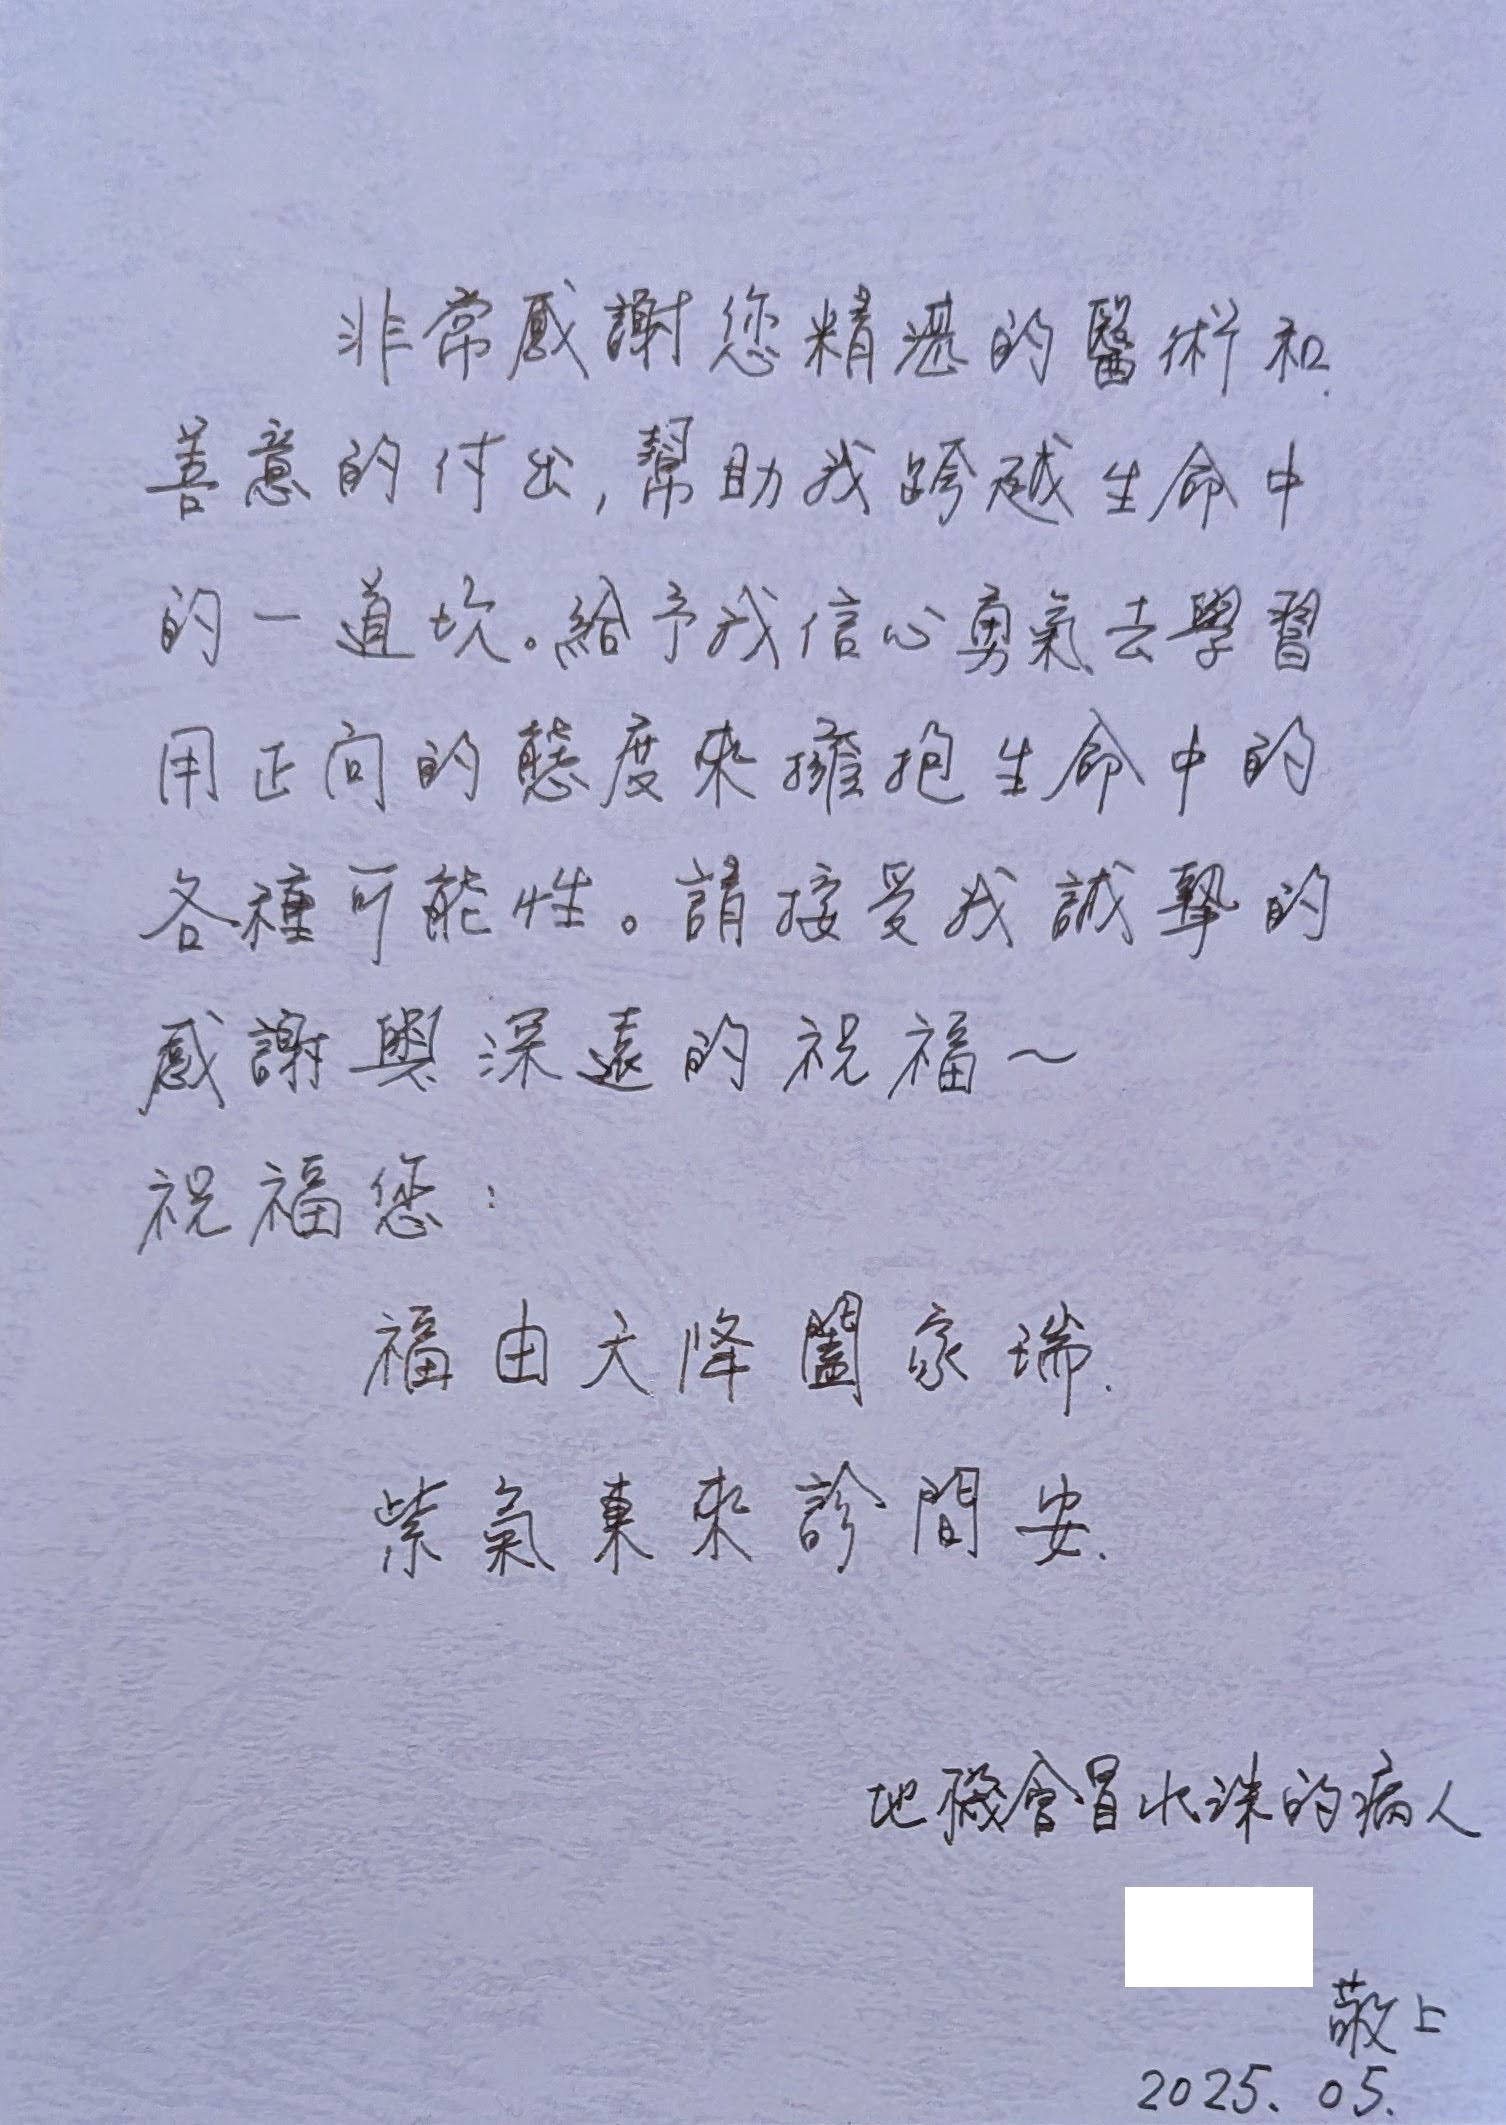 非常感謝您精湛的醫術和
善意的付出,幫助我跨越生命中
的一道坎。給予我信心勇氣去學習
用正向的態度來擁抱生命中的
各種可能性。請接受我誠摯的
感謝與深遠的祝福～
祝福您：
福由天降闔家瑞.
紫氣東來診間安.
地機會冒水珠的病人
敬上
2025.05.